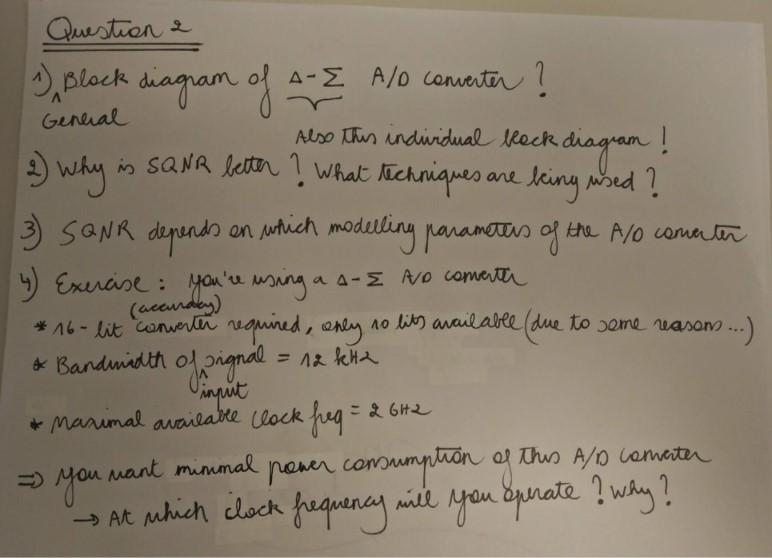 Question 2
1) General Block diagram of Δ-Σ A/D converter ?
Also this individual block diagram !
2) Why is SQNR better ? What techniques are being used ?
3) SQNR depends on which modelling parameters of the A/D converter
4) Exercise : you're using a Δ-Σ A/D converter
* 16-bit converter (accuracy) required, only 10 bits available (due to some reasons...)
* Bandwidth of input signal = 12 kHz
* Maximal available clock freq = 2 GHz
=> You want minimal power consumption of this A/D converter
→ At which clock frequency will you operate ? Why ?